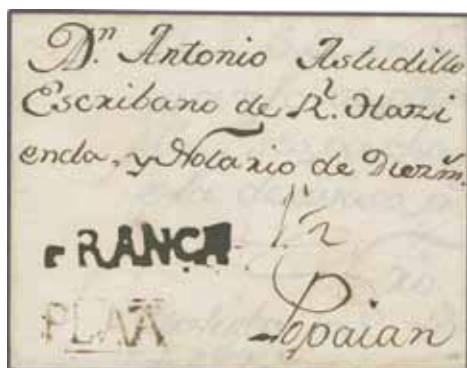 Dn. Antonio Astudillo
Escribano de Rl. Hazi
enda, y Notario de Diezm.
1/2
FRANCA
PLATA
Popaian